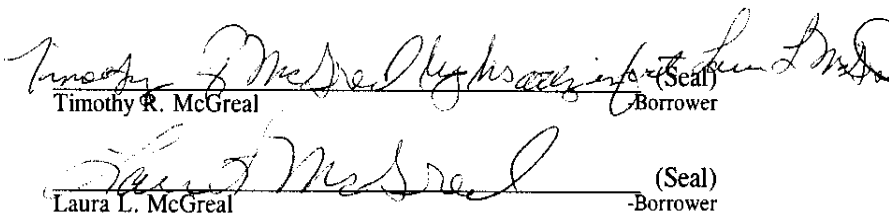 Timothy R McGreal by his atty in fact Laura L McGreal (Seal)
Timothy R. McGreal -Borrower
Laura L McGreal (Seal)
Laura L. McGreal -Borrower